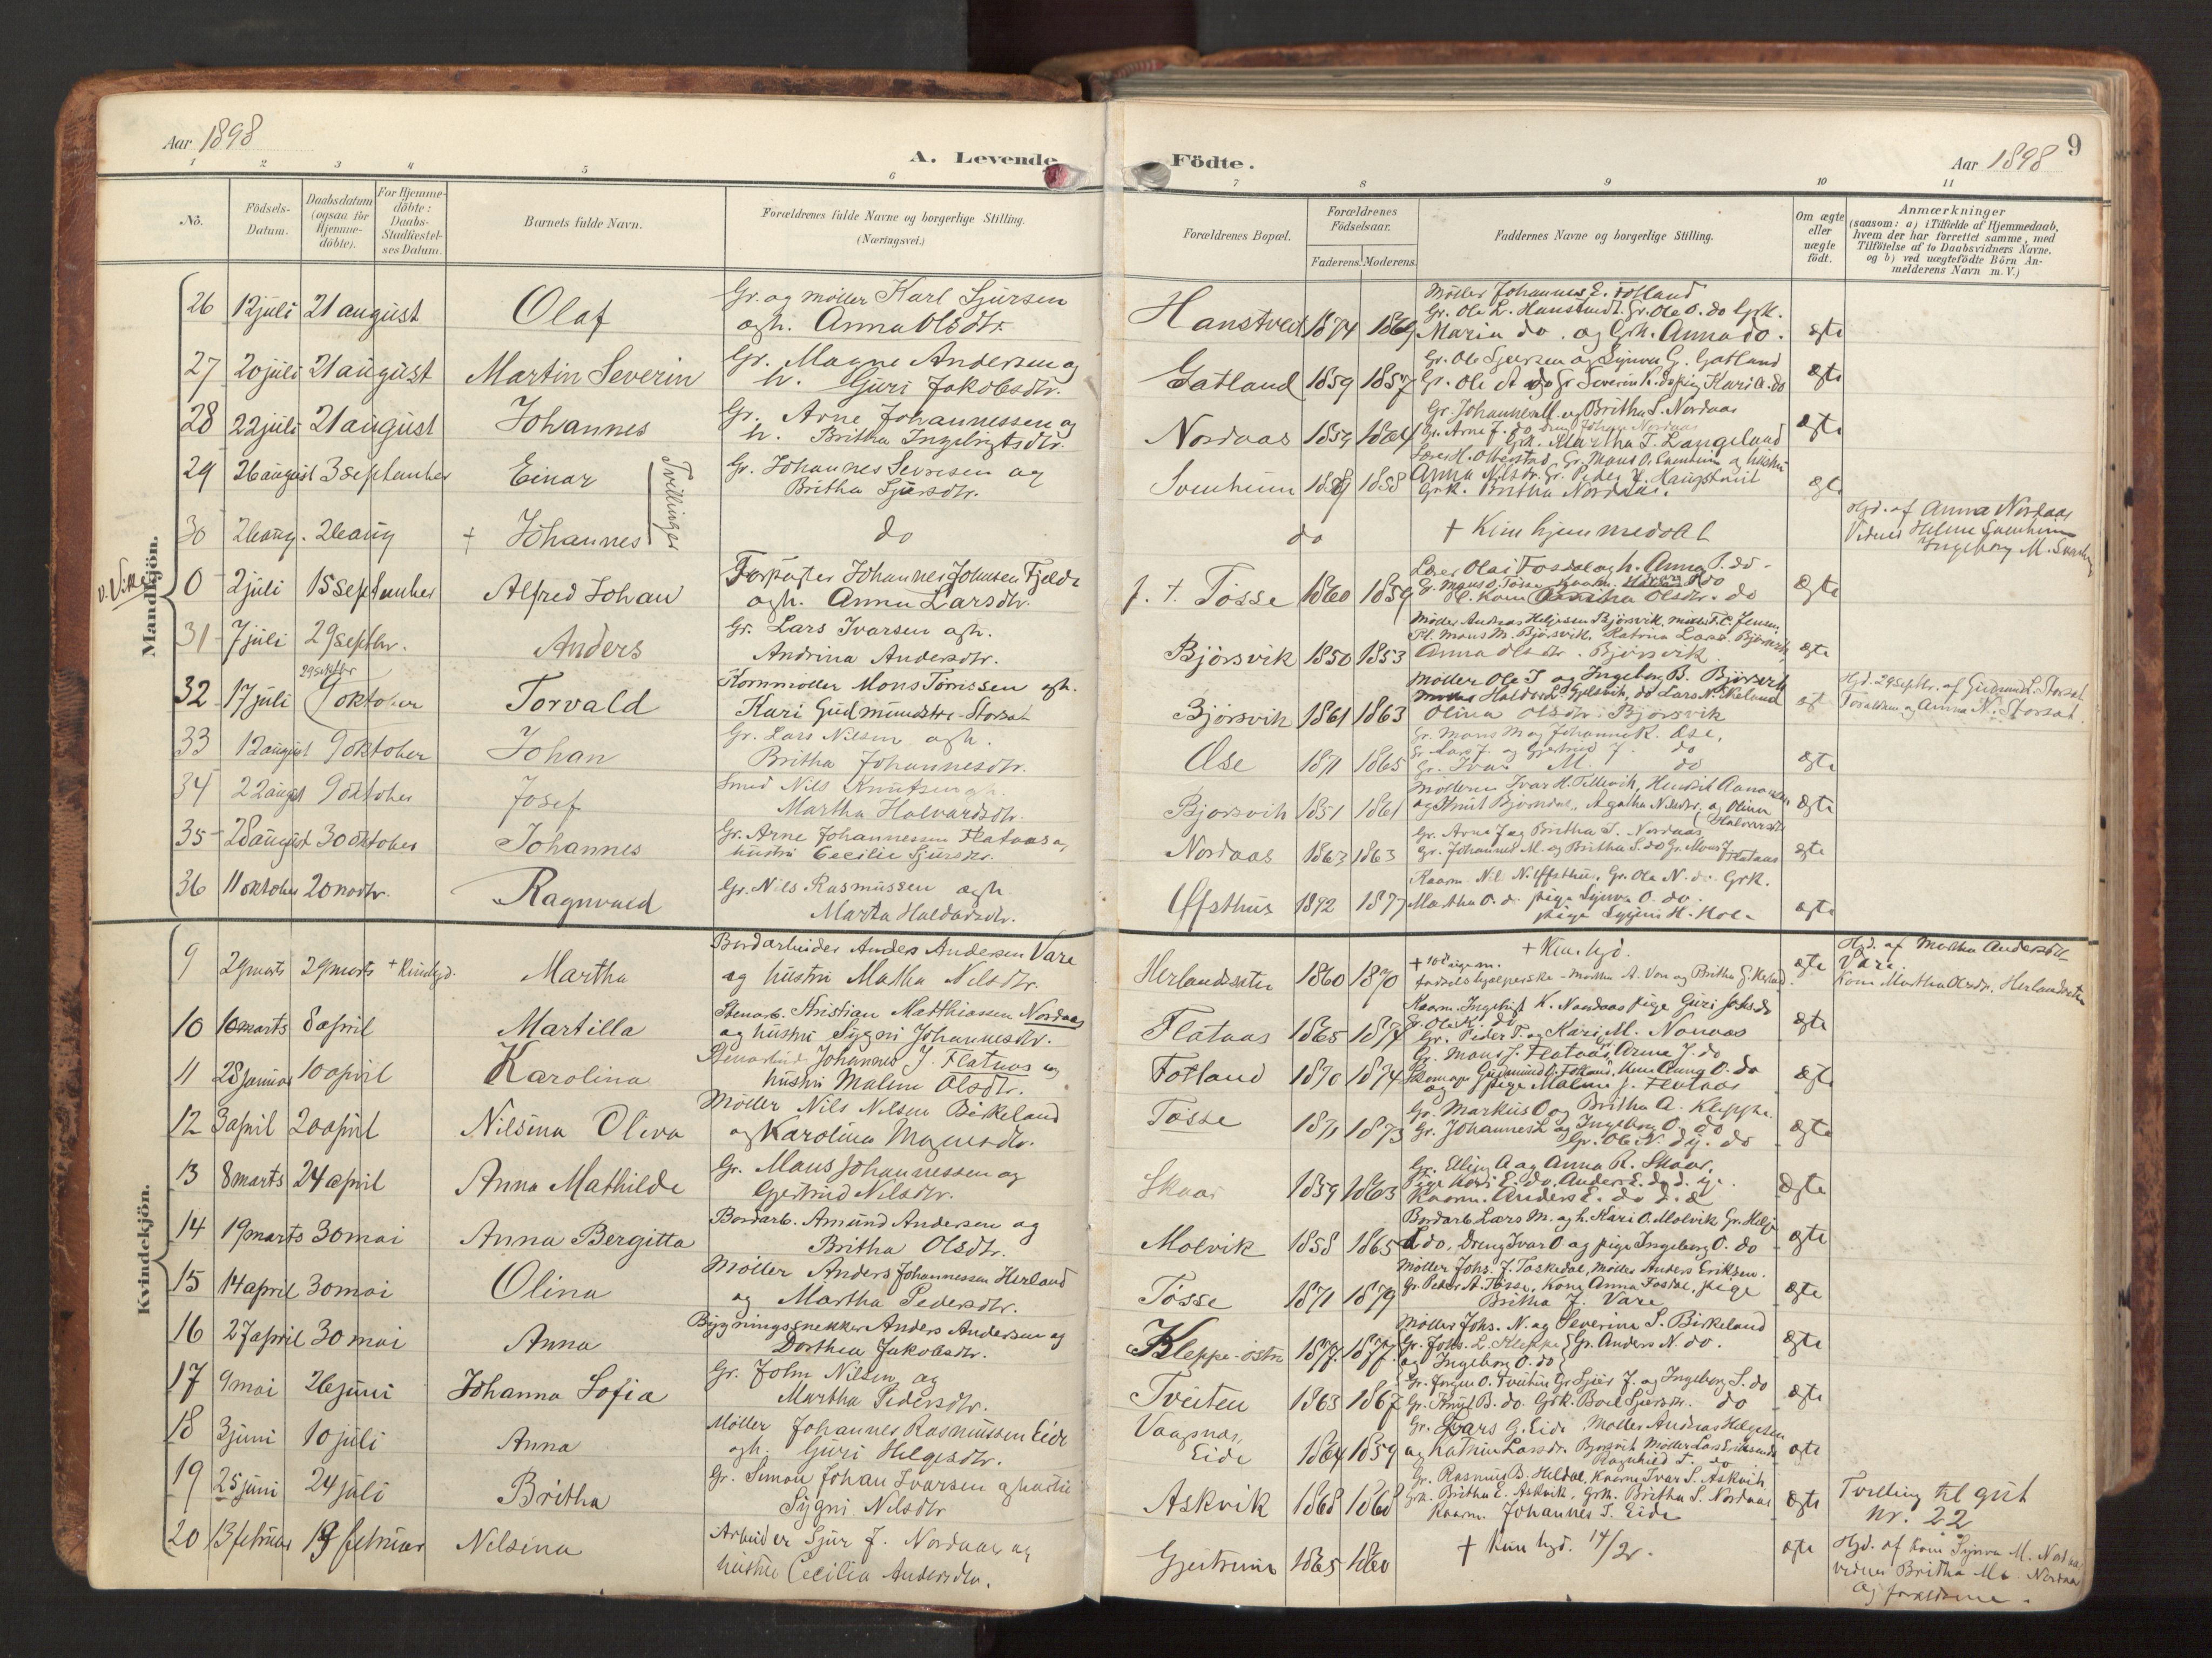 Aar 1898
A. Levende
Födte.
Aar 1898
9
1 2 3 4 5 6 7 8 9 10 11
No.
Födsels-Datum.
Daabsdatum (ogsaa for Hjemmedöbte).
For Hjemmedöbte: Daabs-Stadfæstelses Datum.
Barnets fulde Navn.
Forældrenes fulde Navne og borgerlige Stilling. (Næringsvei.)
Forældrenes Bopæl.
Forældrenes Födselsaar.
Faderens. Moderens.
Faddernes Navne og borgerlige Stilling.
Om ægte eller uægte födt.
Anmærkninger (saasom: a) i Tilfælde af Hjemmedaab, hvem der har forrettet samme, med Tilföielse af to Daabsvidners Navne. og b) ved uægtefödte Börn Anmelderens Navn m. V.)
Mandkjön.
26 12 juli 21 august Olaf Gr. og Møller Karl Sjursen
ogh. Anna Olsdtr. Hanstvedt 1874 1869
Møller Johannes E. Fotland
Gr. Ole L. Hanstvedt. Gr. Ole O. do Grk.
Maria do. og Grk. Anna do. ægte
27 20 juli 21 august Martin Severin Gr. Magne Andersen og
h. Guri Jakobsdtr. Gatland 1859 1857
Gr. Ole Sjursen og Synva G. Gatland
Gr. Ole A do Gr Severin K. do pig Kari A. do ægte
28 22 juli 21 august Johannes Gr. Arne Johannessen og
h. Britha Ingebrigtsdtr. Nordaas 1859 1864
Gr. Johannes M. og Britha S. Nordaas
Gr. Arne J. do dreng Johan Nordaas
Grk. Martha T. Langeland ægte
29 26 august 3 september Einar Tvillinger Gr. Johannes Sevresen og
Britha Sjursdtr. Svenheim 1858
Anna Nilsdtr. Gr. Peder H. Haugstveit
Grk. Britha Nordaas. ægte
30 26 aug. 26 aug + Johannes do do + Kun hjemmedøbt
Hjd. af Anna Nordaas
Vidner Helene Svenheim
Ingeborg M.
0 2 juli 15 september Alfred Johan Forpagter Johannes Johnsen Fjelde
ogh. Anna Larsdtr. f. t. Tösse 1860 1859
Lærer Olai Fosse og h. Anna P. do
Gr. Mons O. Tösse
Olsdtr. do ægte
31 7 juli 29 septbr. Anders Gr. Lars Ivarsen ogh.
Andrina Andersdtr. Bjørsvik 1850 1853
Møller Andreas Helgesen Bjørsvik, møller T. C. Jensen
Pl. Mons M. Bjørsvik, Katrina Lars. Bjørsvik
Anna Olsdtr. Bjørsvik ægte
32 17 juli 9 oktober Torvald Kornmøller Mons Tørrissen ogh.
Kari Gudmundsdtr. Storset Bjørsvik 1861 1863
Møller Ole J og Ingeborg B. Bjørsvik
Olina Olsdtr. Bjørsvik
Hjd. 29 septbr. af Gudmund L. Storset
Forældrene og Anna N. Storset.
33 12 august 9 oktober Johan Gr. Lars Nilsen ogh.
Britha Johannesdtr. Ose 1871 1865
Gr. Mons M og Johanna K. Ose,
Gr. Lars J. og Gjertrud J. do
Gr. Ivar M. do ægte
34 22 august 9 oktober Josef Smed Nils Knutsen ogh.
Martha Halvardsdtr. Bjørsvik 1851 1861
og Knut Bjørndal, Agatha Nilsdtr. og Olina
Halvarsdtr ægte
35 28 august 30 oktober Johannes Gr. Arne Johannessen Flataas og
hustru Cecilie Sjursdtr. Nordaas 1863 1863
Gr. Arne J og Britha I. Nordaas
Gr. Johannes M. og Britha S. do Gr. Mons J Flataas ægte
36 11 oktober 20 novbr. Ragnvald Gr. Nils Rasmussen ogh.
Marta Haldorsdtr. Uffsthus 1892 1877
Martha O. do pige Synva O. do.
ægte
Kvindekjön.
9 29 marts 29 marts + Kun hjd. Martha Bordarbeider Anders Andersen Vare
og hustru Martha Nilsdtr. Herlandsæter 1860 1870
+ Kun hjd.
fødselshjælperske - Martha A. Vare og Britha G. Herland. ægte
Hjd. af Martha Andersdtr.
Vare.
Kone Martha Olsdtr. Herlandsæter
10 10 marts 8 april Martilla Stenarb. Kristian Matthiassen Nordaas
og hustru Sygni Johannesdtr. Flataas 1865 1877
Kaarm. Ingebrigt K. Nordaas pige Guri
Gr. Ole K. do
Gr. Peder T. og Kari M. Nordaas ægte
11 28 januar 10 april Karolina Stenarbeid. Johannes J. Flataas og
hustru Malene Olsdtr. Fotland 1870 1874
Gr. Mons J. Flataas Gr. Arne J. do
Skomager Gudmund O. Fotland, Kone Anna O. do
og pige Malene J. Flataas ægte
12 3 april 20 april Nilsina Oliva Møller Nils Nilsen Birkeland
og Karolina Magnesdtr. Tösse 1871 1873
Gr. Markus O og Britha A. Kleppe.
Gr. Johannes L og Ingeborg O. do
Gr. Ole N. dy. do ægte
13 8 marts 24 april Anna Mathilde Gr. Mons Johannessen og
Gjertrud Nilsdtr. Skaar 1859 1863
Gr. Elling A og Anna R. Skaar,
Pige Kari E. do, Anders E. do d. y.
Kaarm. Anders E. do d. æ ægte
14 19 marts 30 mai Anna Bergitta Bordarb. Amund Andersen og
Britha Olsdtr. Molvik 1858 1865
Bordarb. Lars M. og h. Kari O. Molvik Gr. Helge
L do, Dreng Ivar O og pige Ingeborg O. do ægte
15 14 april 30 mai Olina Møller Anders Johannessen Herland
og Martha Pedersdtr. Tösse 1871 1879
Møller Johs. J. Taskedal, Møller Anders Eriksen.
Gr. Peder A. Tösse, Kone Anna Fosdal, pige
Britha J. Vare ægte
16 27 april 30 mai Anna Bygningssnekker Anders Andersen og
Dorthea Jakobsdtr. Kleppe-östre 1877. 1877.
Møller Johs. N. og Severine S. Birkeland
Gr. Johs. L. Kleppe Gr. Anders N. do.
og Ingeborg O. do ægte
17 9 mai 26 juni Johanna Sofia Gr. John Nilsen og
Martha Pedersdtr. Tveiten 1863 1867
Gr. Jørgen O. Tveiten Gr Sjur J. og Ingeborg S. do
Gr. Knut B. do. Grk. Boel Sjursdtr. do ægte
18 3 juni 10 juli Anna Møller Johannes Rasmussen Eide
ogh. Guri Helgesdtr. Vaagnes, Eide 1864 1859
Gr. Lars G. Eide Møller Andreas Helgesen
og Katrine Larsdtr. Bjørsvik Møller Lars Eriksen do
Ragnhild T. do ægte
19 25 juni 24 juli Britha Gr. Simon Johan Ivarsen og hustru
Sygni Nilsdtr Askvik 1868 1868
Gr. Rasmus B. Heldal, Kaarm. Ivar S. Askvik
Grk. Britha E. Askvik, Grk. Britha S. Nordaas
Kaarm. Johannes I. Eide ægte
Tvilling til gut
nr. 22
20 13 februar 19 februar Nelsina Arbeider Sjur J. Nordaas og
hustru Cecilia Andersdtr. Gjeitrum 1865 1860
+ Kun hjd. 14/2. ægte
Hjd. af Kone Synva M. Nordaas
vidner Britha M. Nordaas
og forældrene.